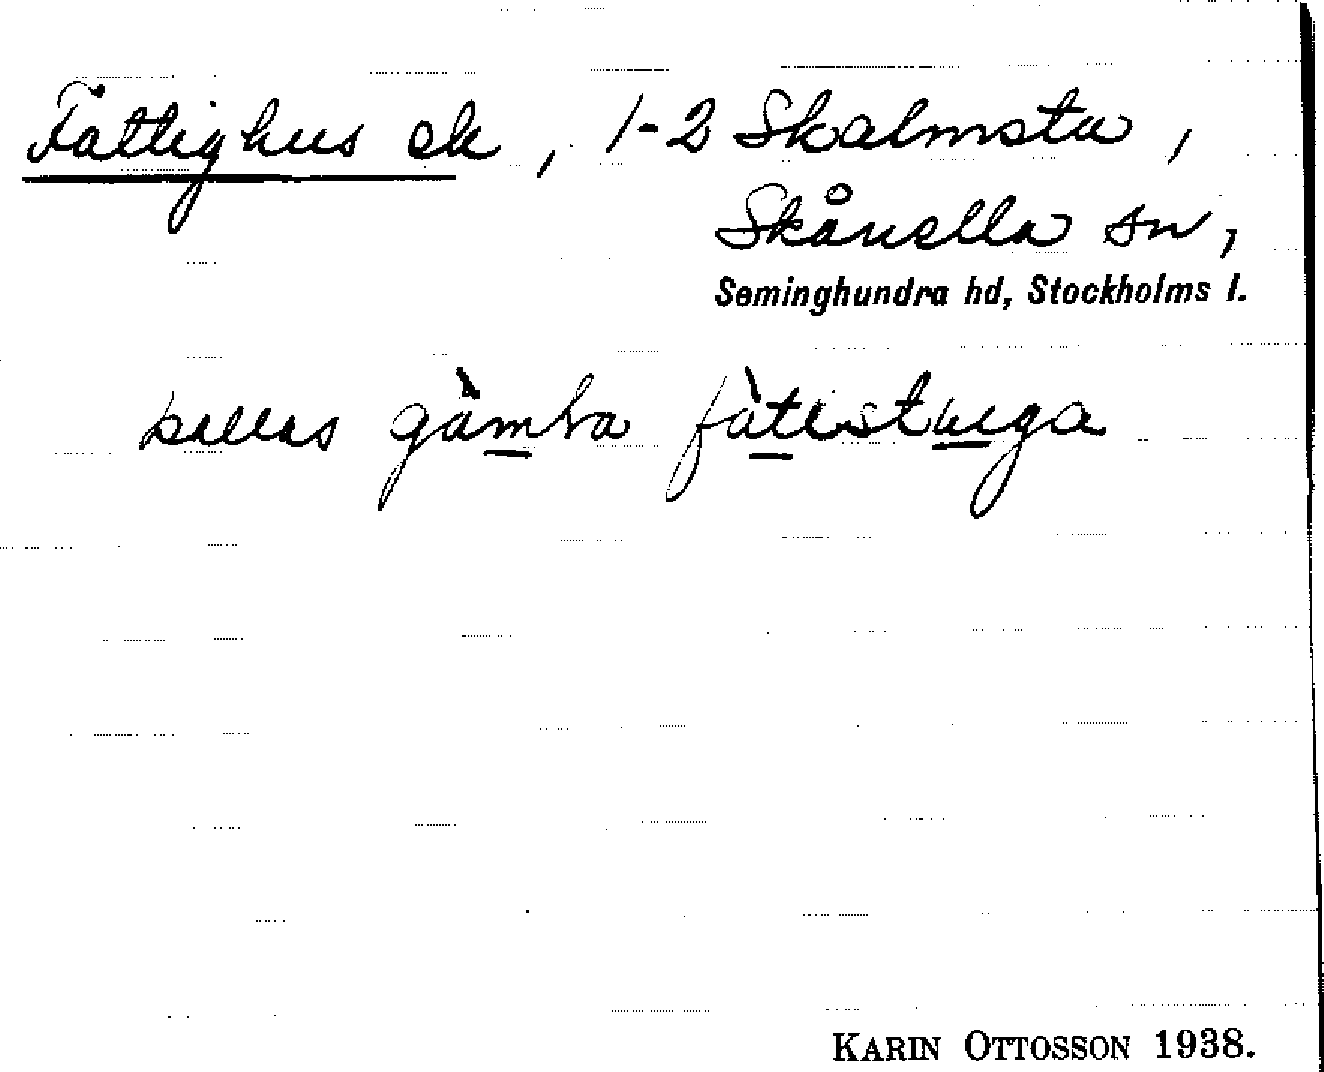 Fattighus ek, 1-2 Skalmsta,
Skånella sn,
Seminghundra hd, Stockholms l.
kallas gàmla fàtistuga
KARIN OTTOSSON 1938.